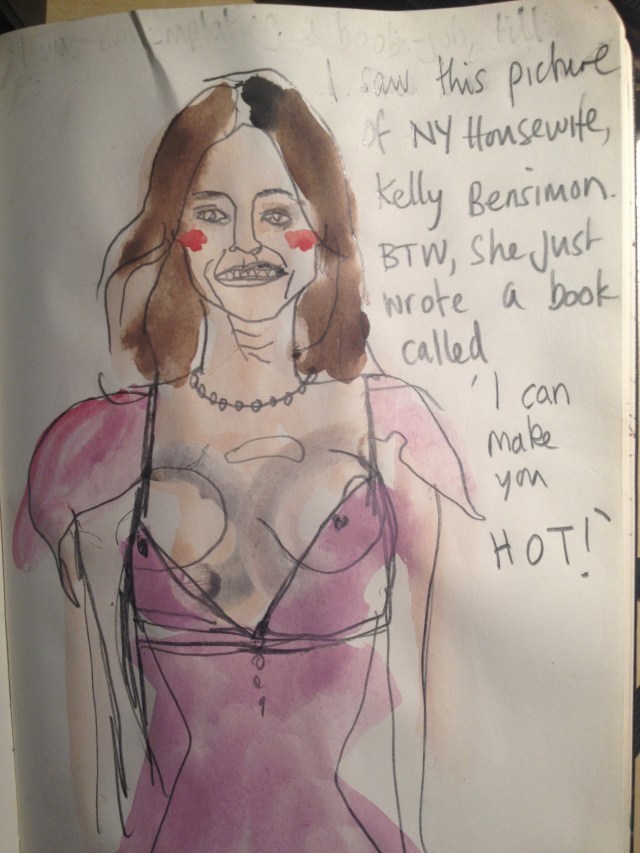 I saw this picture
of NY Housewife,
Kelly Bensimon.
BTW, She Just
wrote a book
called
'I can
make
you
HOT!'